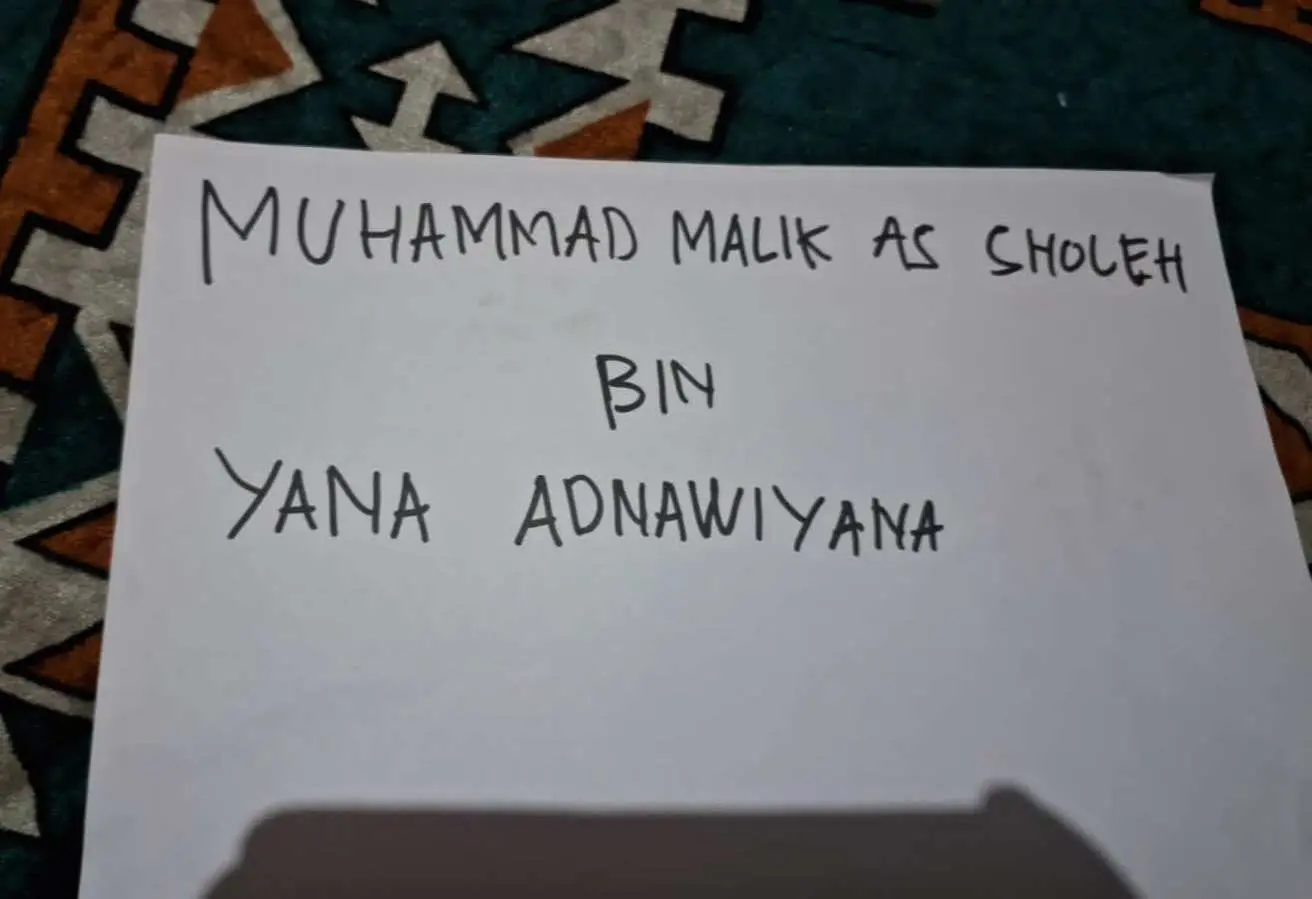 MUHAMMAD MALIK AS SHOLEH
BIN
YANA ADNAWIYANA